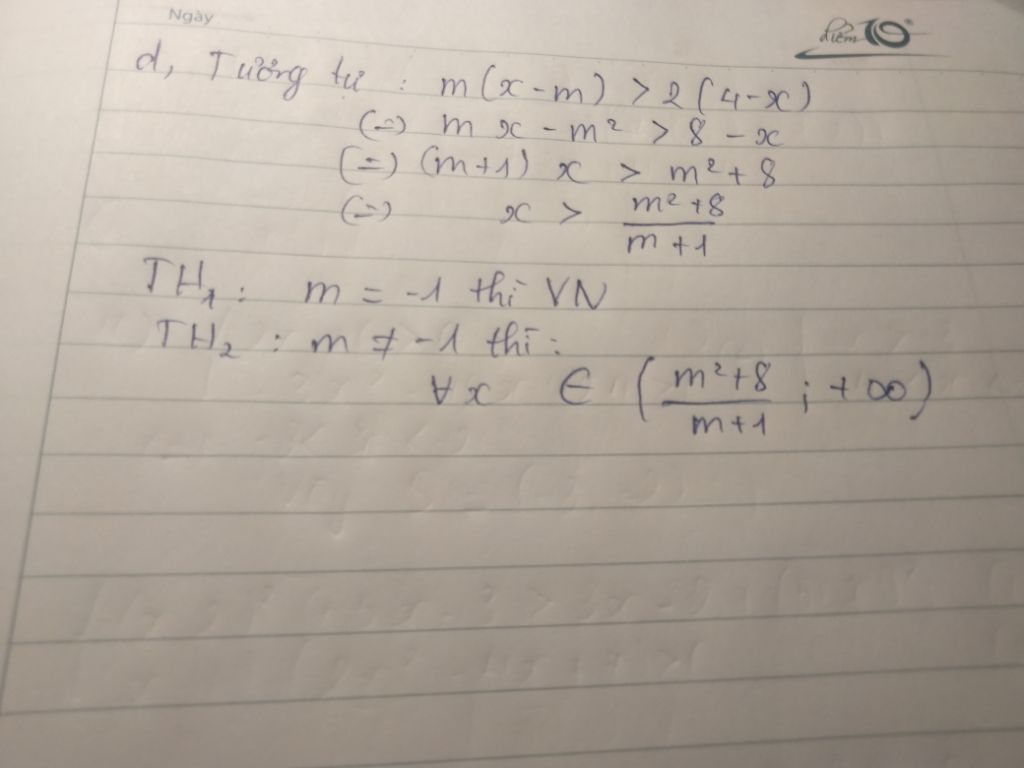 Ngày
điểm 10
d, Tương tự : m(x-m) > 2(4-x)
(=) mx - m² > 8 - x
(=) (m+1) x > m² + 8
(=) x > \frac{m²+8}{m+1}
TH₁ : m = -1 thì VN
TH₂ : m ≠ -1 thì :
∀x ∈ (\frac{m²+8}{m+1} ; +∞)